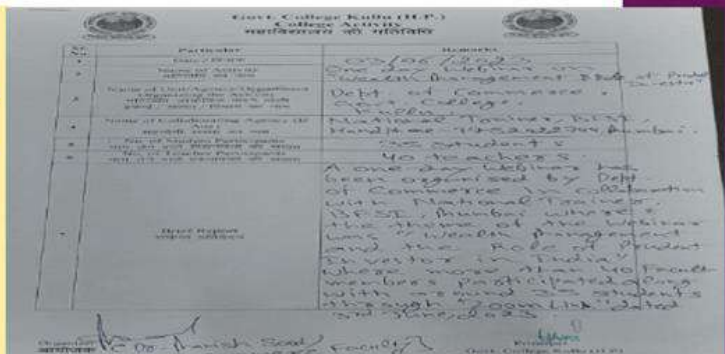 Govt. College Kullu (H.P.)
College Activity
महाविद्यालय की गतिविधि
Sr. No. Particular Remarks
1 Date / दिनांक 03/06/2023
2 Name of Activity One day Webinar on
"Wealth Management & Role of Prudent
Investor"
3 Name of Unit/Agency/Department
Organizing the Activity Dept. of Commerce,
Govt. College,
Kullu
4 Name of Collaborating Agency (If
Any) National Trainer, BFSI,
Mumbai.
5 No. of Student Participants 35 students
6 No. of Teacher Participants 40 teachers
7 Brief Report
A one day Webinar has
been organised by Dept.
of Commerce in collaboration
with National Trainer,
BFSI, Mumbai where
the theme of the webinar
was "Wealth Management
and the Role of Prudent
Investor in India"
where more than 40 Faculty
members participated along
with around 35 students
through "Zoom Link" dated
3rd June, 2023
Organizer
आयोजक
Dr. Manish Sood
Faculty
Principal
Govt. College Kullu (H.P.)